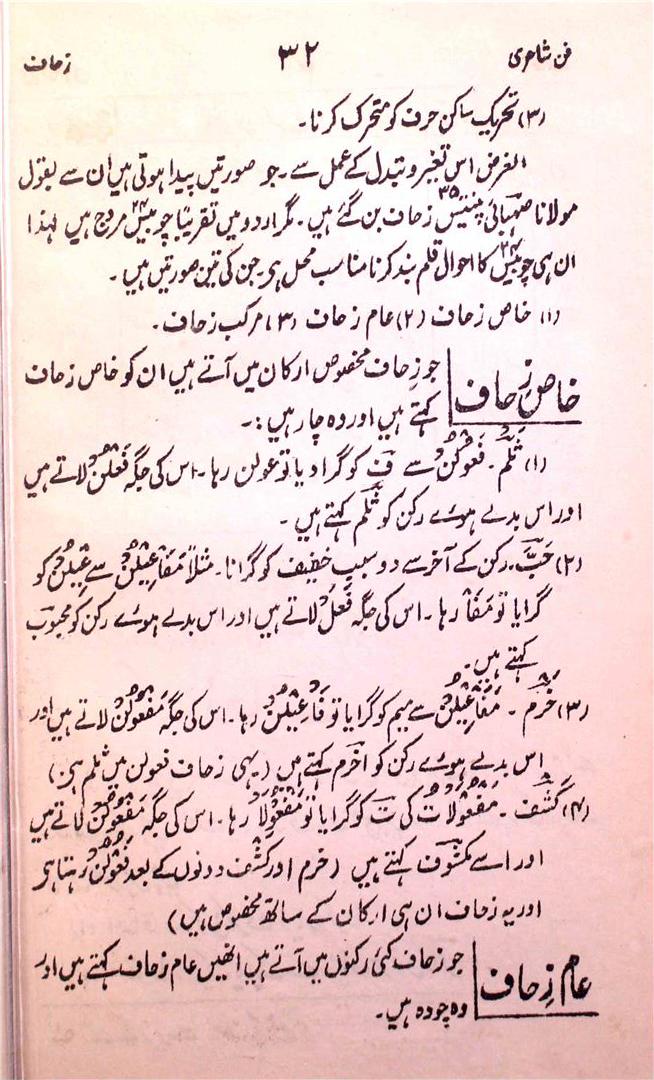 فن شاعری ۳۲ زحاف
(۳) تحریک ساکن حرف کو متحرک کرنا۔
الغرض اس تغیر و تبدل کے عمل سے۔ جو صورتیں پیدا ہوتی ہیں ان سے بقول
مولانا صہبائی پینتیس ۳۵ زحاف بن گئے ہیں۔ مگر اردو میں تقریباً چوبیس ۲۴ مروج ہیں لہذا
ان ہی چوبیس ۲۴ کا احوال قلم بند کرنا مناسب محل ہے۔ جن کی تین صورتیں ہیں۔
(۱) خاص زحاف (۲) عام زحاف (۳) مرکب زحاف۔
خاص زحاف جو زحاف مخصوص ارکان میں آتے ہیں ان کو خاص زحاف
کہتے ہیں اور وہ چار ہیں:۔
(۱) ثَلَم۔ فَعُولُنْ سے فَ کو گرا دیا تو عولن رہا۔ اس کی جگہ فَعْلُنْ لاتے ہیں
اور اس بدلے ہوئے رکن کو اثلم کہتے ہیں۔
(۲) جَبّ۔ رکن کے آخر سے دو سببِ خفیف کو گرانا۔ مثلاً مَفَاعِیْلُنْ سے عِیْلُنْ کو
گرایا تو مَفَا رہا۔ اس کی جگہ فَعَلْ لاتے ہیں اور اس بدلے ہوئے رکن کو مجبوب
کہتے ہیں۔
(۳) خَرم۔ مَفَاعِیْلُنْ سے میم کو گرایا تو فَاعِیْلُنْ رہا۔ اس کی جگہ مَفْعُوْلُنْ لاتے ہیں اور
اس بدلے ہوئے رکن کو اخرم کہتے ہیں (یہی زحاف فعولن میں ثلم ہے)
(۴) کَشْف۔ مَفْعُوْلَاتُ کی تَ کو گرایا تو مَفْعُوْلَا رہا۔ اس کی جگہ مَفْعُوْلُنْ لاتے ہیں
اور اسے مکشوف کہتے ہیں (خرم اور کشف دونوں کے بعد رہتا ہے
اور یہ زحاف ان ہی ارکان کے ساتھ مخصوص ہیں)
عام زِحاف جو زحاف کئی رکنوں میں آتے ہیں انھیں عام زحاف کہتے ہیں اور
وہ چودہ ہیں۔